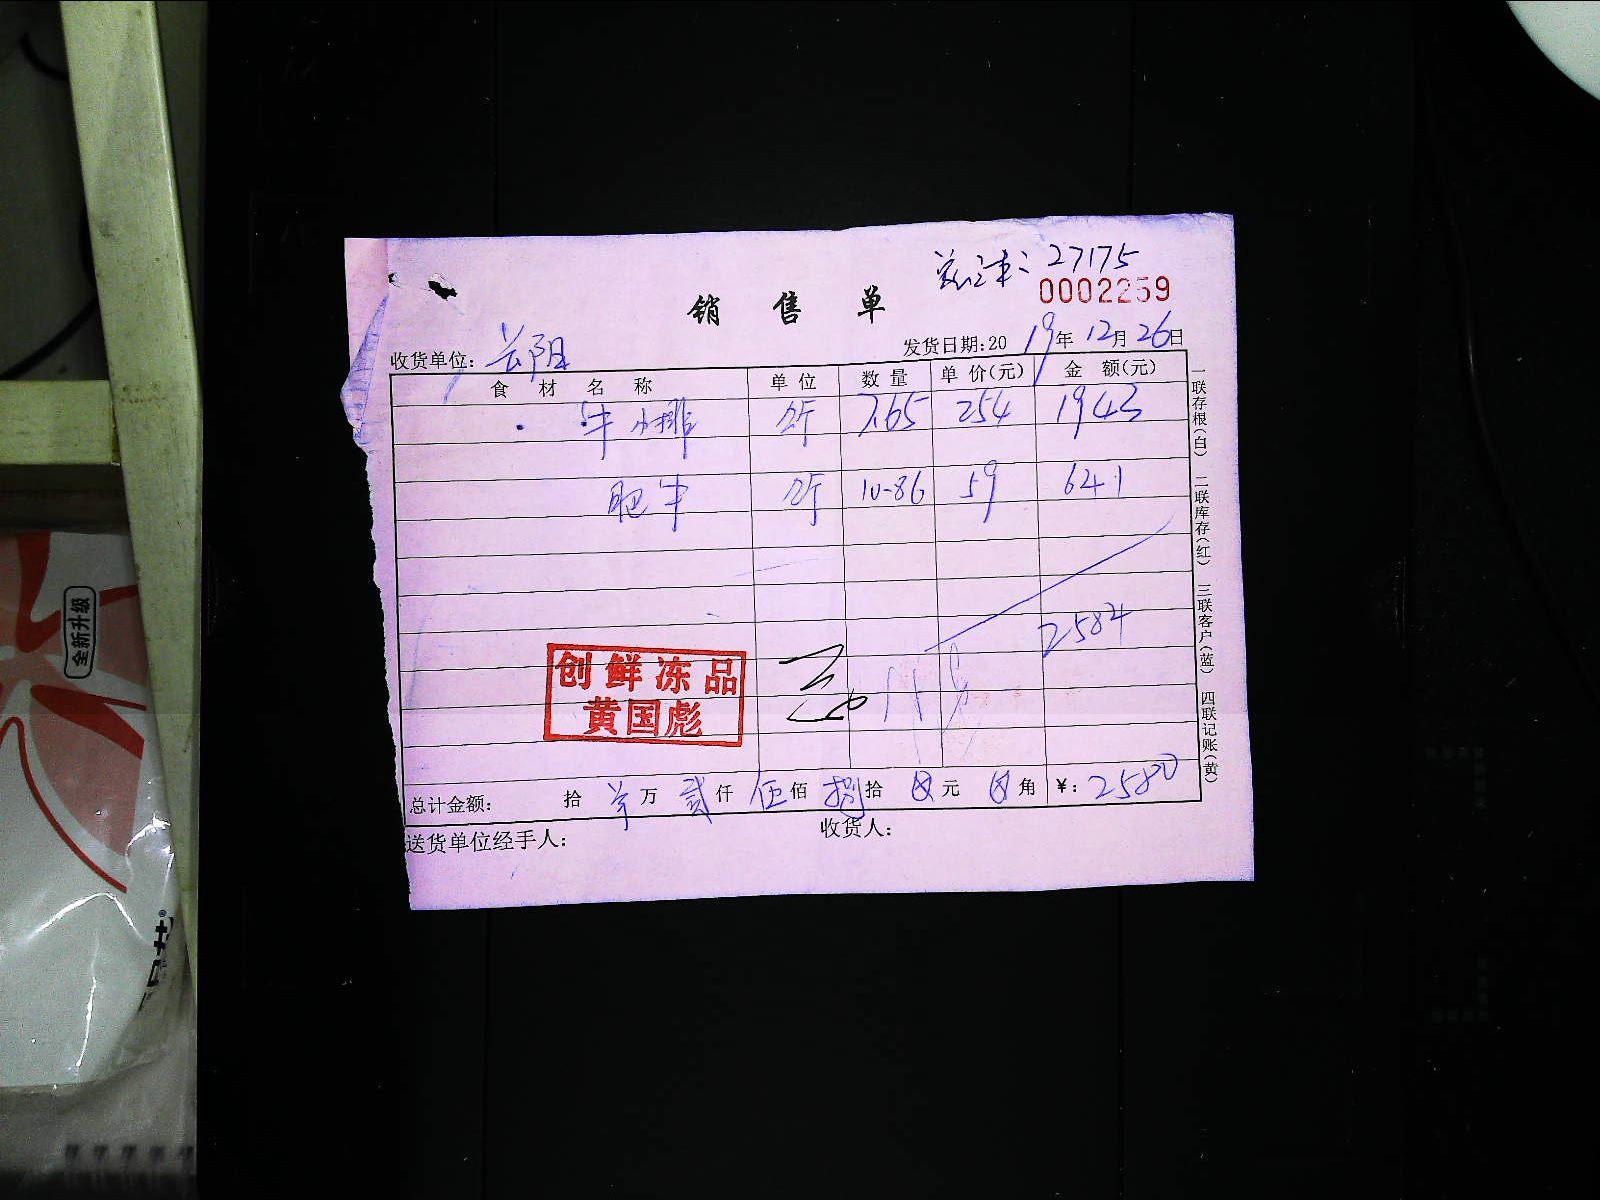 27175
0002259
销售单
收货单位: 长阳
发货日期:2019年12月26日
食材名称 单位 数量 单价(元) 金额(元)
牛小排 斤 7.65 254 1943
肥牛 斤 10-86 59 641
2584
创鲜冻品
黄国彪
总计金额: 拾 万 贰仟 伍佰 捌拾 元 角 ¥: 2580
送货单位经手人: 收货人:
一联存根(白) 二联库存(红) 三联客户(蓝) 四联记账(黄)
全新升级